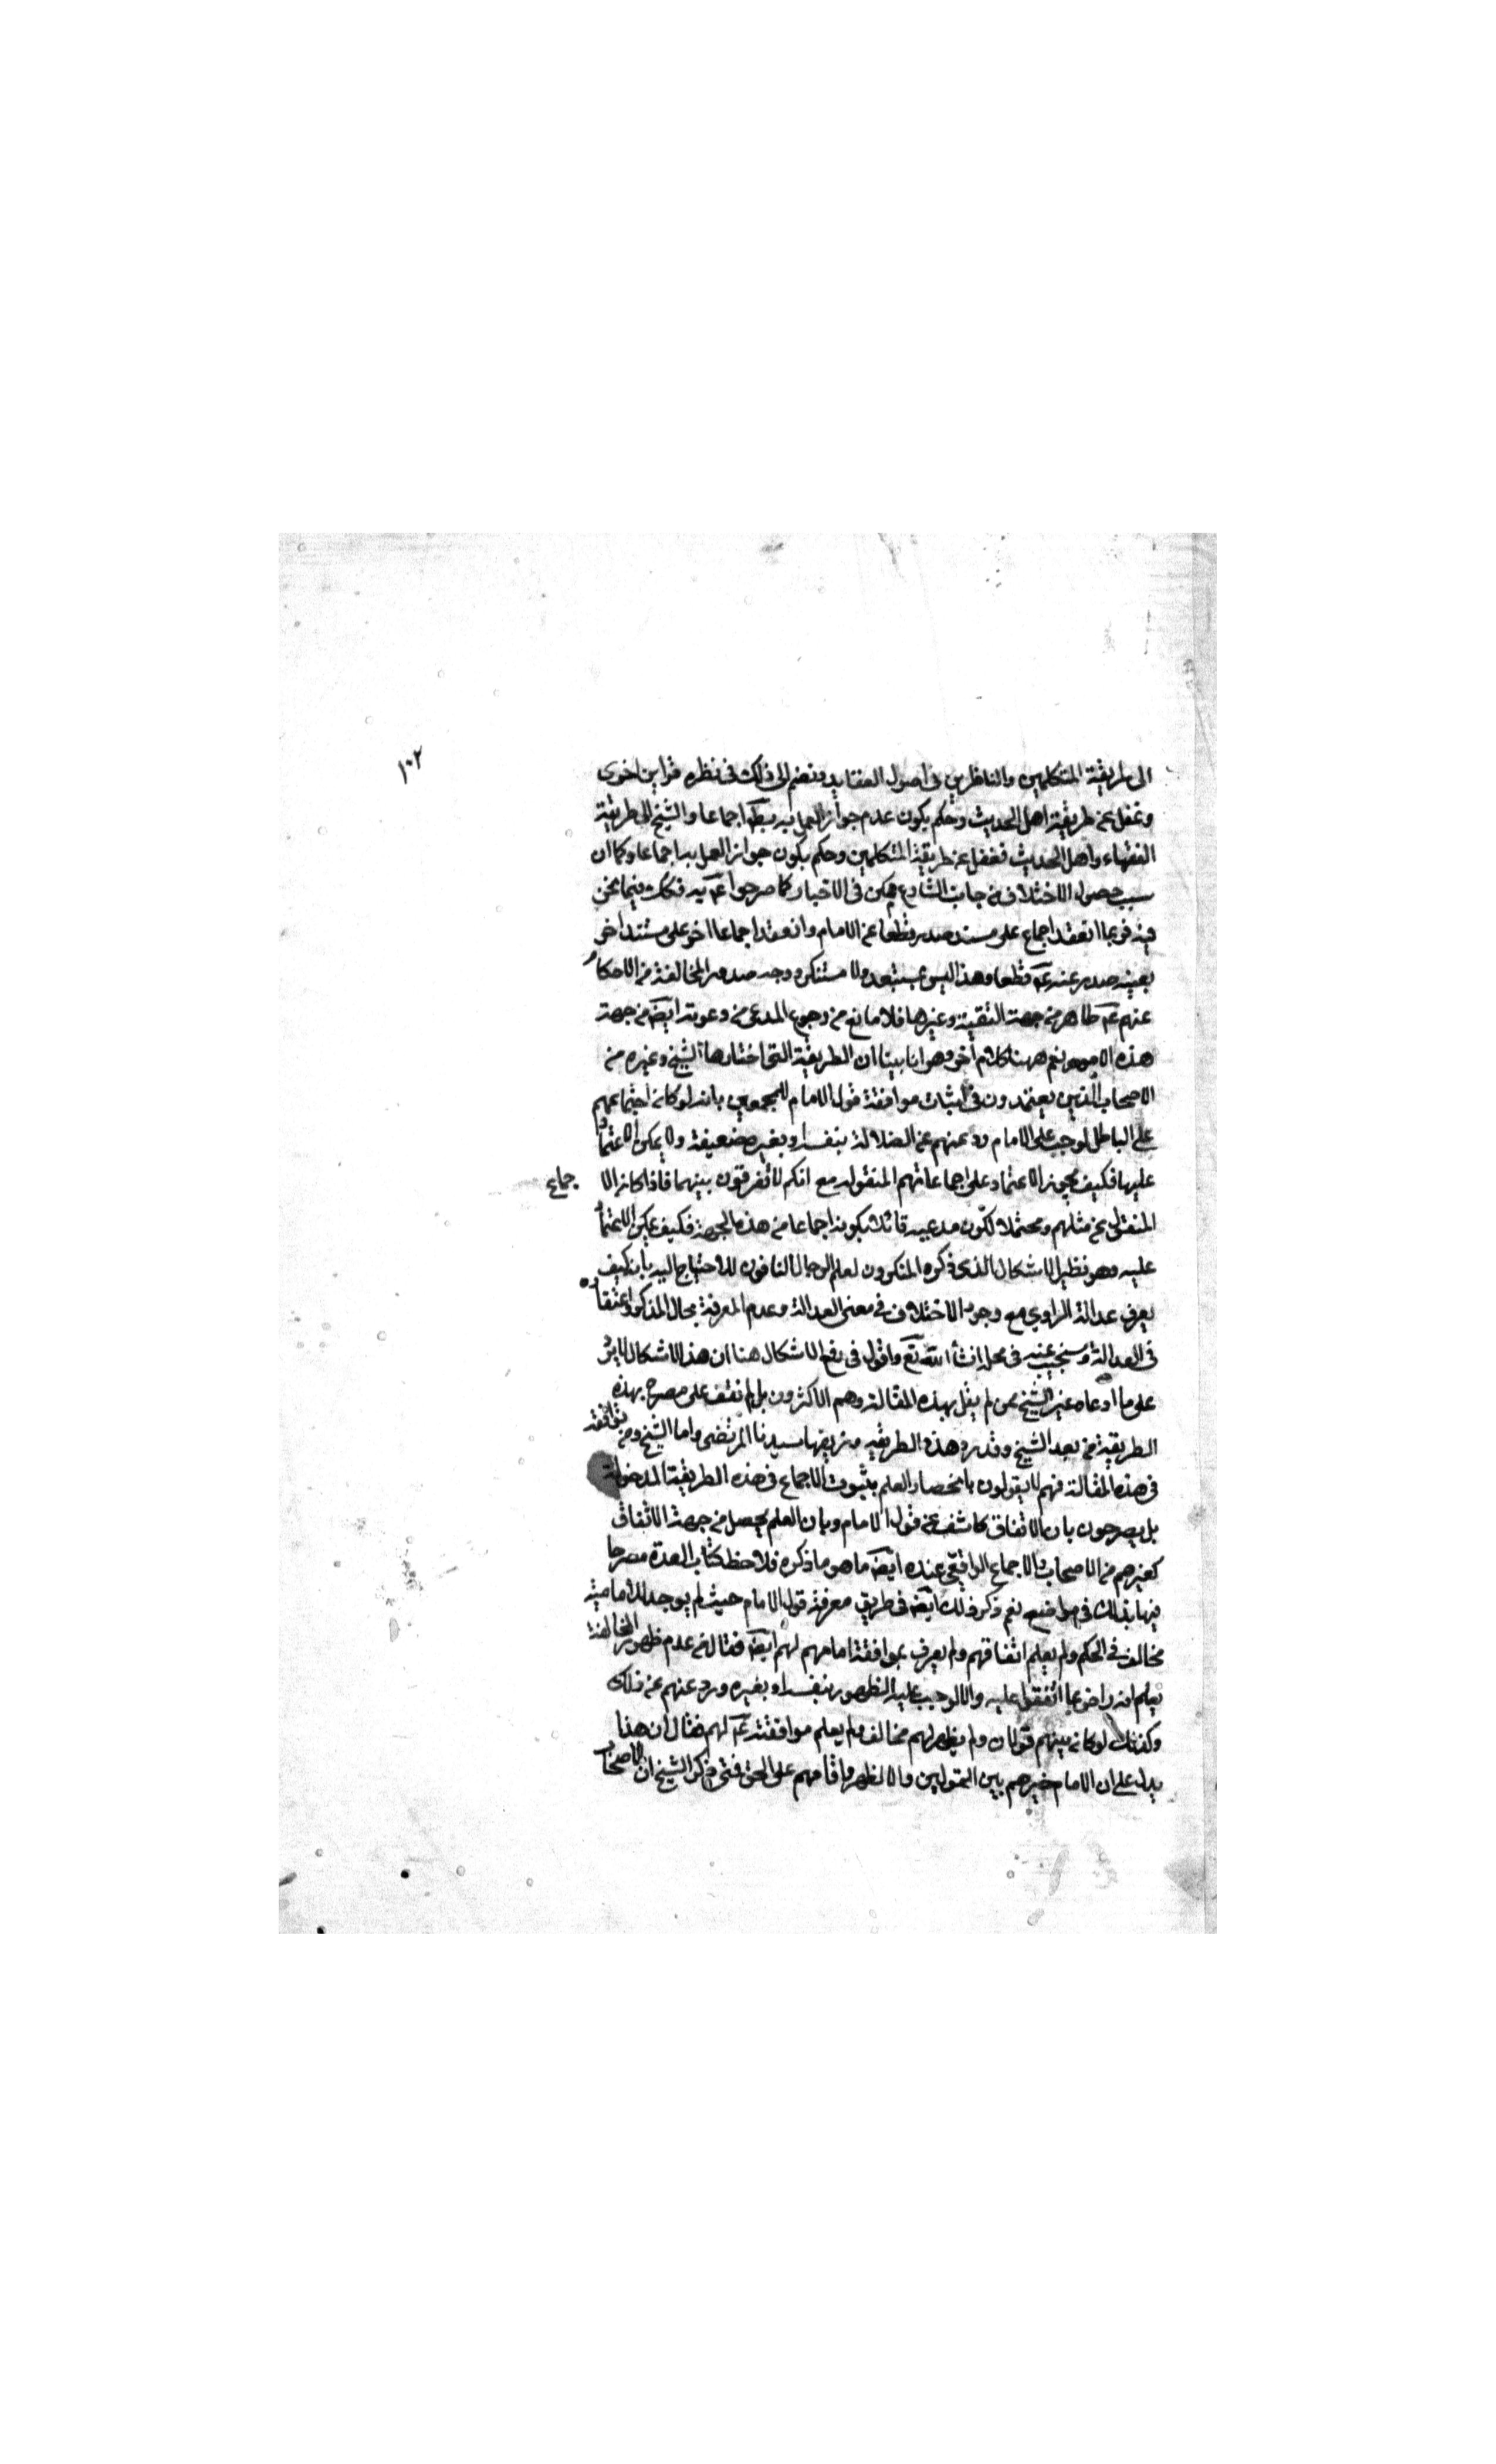 ١٠٢
الى طريقة المتكلمين والناظرين في اصول العقايد ونضم الى ذلك في نظره قراين اخرى
وغفل عن طريقة اهل الحديث وحكم بكون عدم جواز العمل به اجماعا والشيخ الى طريقة
الفقهاء واهل الحديث فغفل عن طريقة المتكلمين وحكم بكون جواز العمل به اجماعا وكما ان
سبب حصول الاختلاف من جانب الشارع ممكن في الاخبار كما صرحوا عم به فكك فيما نحن
فيه فربما انعقد اجماع على مستند صدر قطعا عن الامام وانعقد اجماعا اخر على مستند اخر
بعينه صدر عنه عم قطعا وهذا ليس بمستبعد ولا مستنكر ووجه صدور المخالفة من الاحكام
عنهم عم ظاهر من جهة التقية وغيرها فلا مانع من وجوع المدعى من دعويه ايضَ من جهة
هذه الامور نعم ههنا كلام اخر وهو انا بينا ان الطريقة التي اختارها الشيخ وغيره من
الاصحاب الذين يعتمدون في اثبات موافقة قول الامام للمجمعين بانه لو كان اجتماعهم
على الباطل لوجب على الامام ردعهم عن الضلالة بنفسه او بغيره ضعيفة ولا يمكن الاعتماد
عليها فكيف يجوز الاعتماد على اجماعاتهم المنقوله مع انكم لا تفرقون بينهما فاذا كان الا جماع
المنقول عن مثلهم ومحتملا لكون مدعيه قائلا بكونه اجماعا من هذه الجهة فكيف يمكن الاعتماد
عليه وهو نظير الاشكال الذى ذكره المنكرون لعلم الرجال النافون للاحتياج اليه بانه كيف
يعرف عدالة الراوي مع وجود الاختلاف في معنى العدالة وعدم المعرفة بحال المذكور واعتقاده
في العدالة وسنجيب عنه في محله انشأ الله تع واقول في دفع الاشكال هنا ان هذا الاشكال لا يرد
على ما ادعاه غير الشيخ ممن لم يقل بهذه المقالة وهم الاكثرون بل لم نقف على مصرح بهذه
الطريقة من بعد الشيخ وقد رد هذه الطريقه وزيفها سيدنا المرتضى واما الشيخ ومن يوافقه
في هذه المقالة فهم لا يقولون بانحصار العلم بثبوت الاجماع في هذه الطريقة المدخولة
بل يصرحون بان الاتفاق كاشف عن قول الامام وبان العلم يحصل من جهة الاتفاق
كغيرهم من الاصحاب والاجماع الواقعى عنده ايضَ ما هو ما ذكره فلاحظ كتاب العدة مصرحا
فيها بذلك في مواضع نعم ذكر ذلك ايضَ في طريق معرفة قول الامام حيث لم يوجد للامامية
مخالف في الحكم ولم يعلم اتفاقهم ولم يعرف بموافقة امامهم لهم ايضَ فقال من عدم ظهور المخالفة
يعلم انه راض بما اتفقوا عليه والا لوجب عليه الظهور بنفسه او بغيره وردعهم عن ذلك
وكذلك لو كان بينهم قولان ولم يظهر لهم مخالف ولم يعلم موافقته عم لهم فقال ان هذا
يدل على ان الامام خيرهم بين القولين والا لظهر واقامهم على الحق فمتى ذكر الشيخ ان الاصحاب